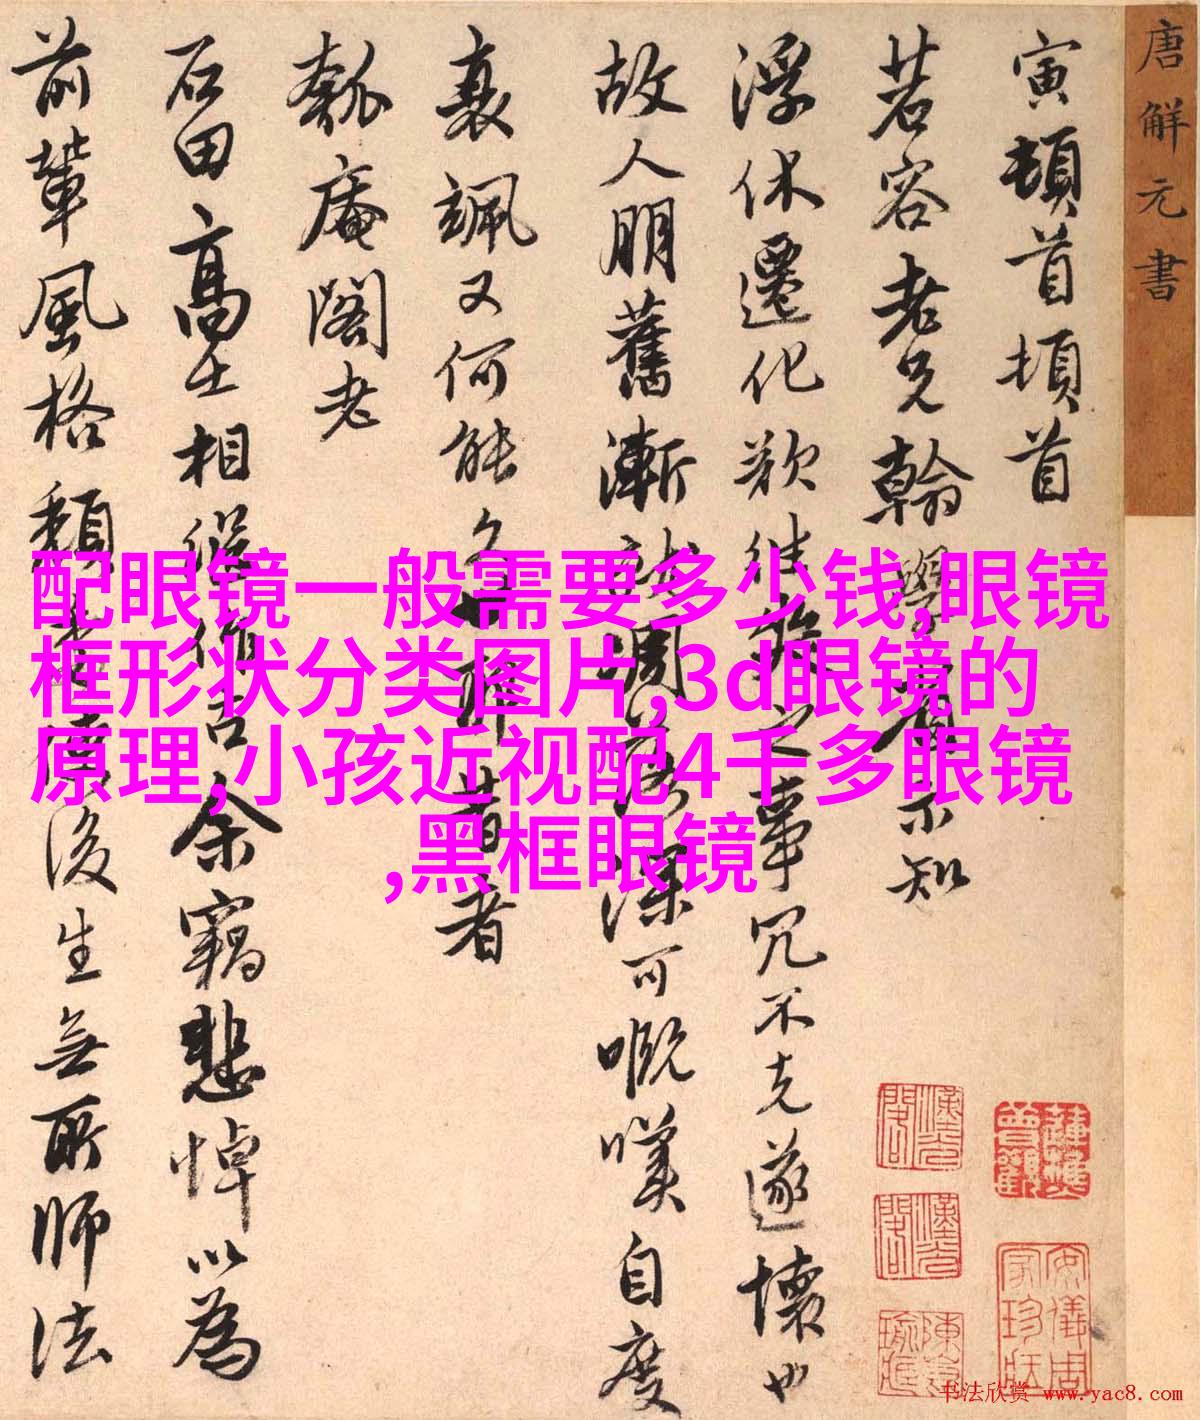 唐解元書
寅頓首頓首
茗容老兄翰學足有不知
浮休遷化欲往
之事冗不克遂懷也
故人朋舊漸
凋落深可嘅嘆自度
衰颯又何能久
昔者
瓠庵閣老
石田高士相繼作古余竊悲悼以為
前輩風格
後生無所師法
配眼镜一般需要多少钱,眼镜
框形状分类图片,3d眼镜的
原理,小孩近视配4千多眼镜
,黑框眼镜
书法欣赏 www.yac8.com